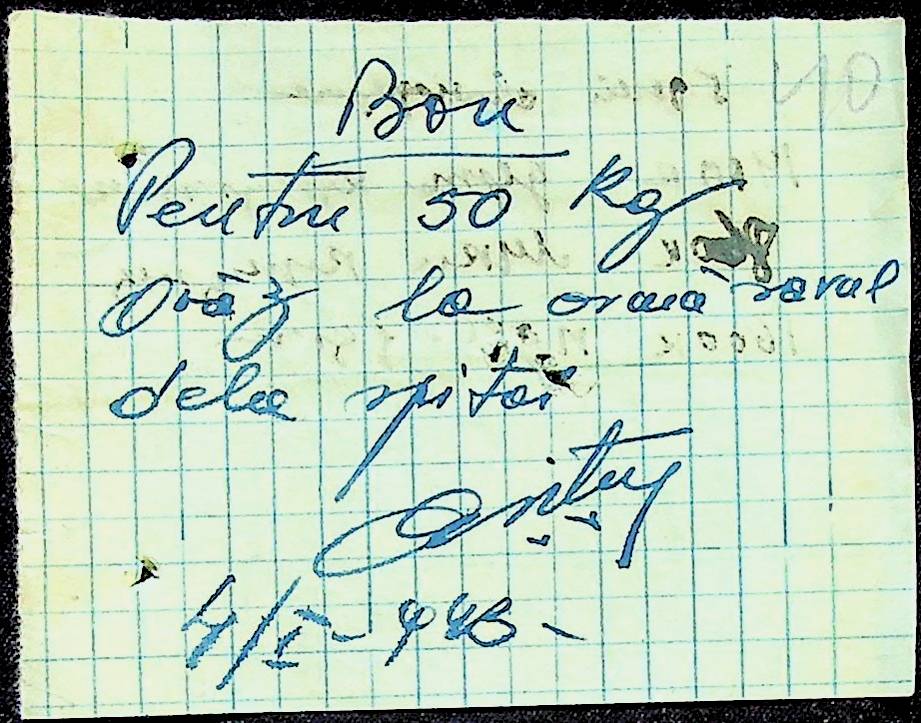 10
Bon
Pentru 50 Kg
Orăz la armăsarul
dela spital
4/I - 943 -